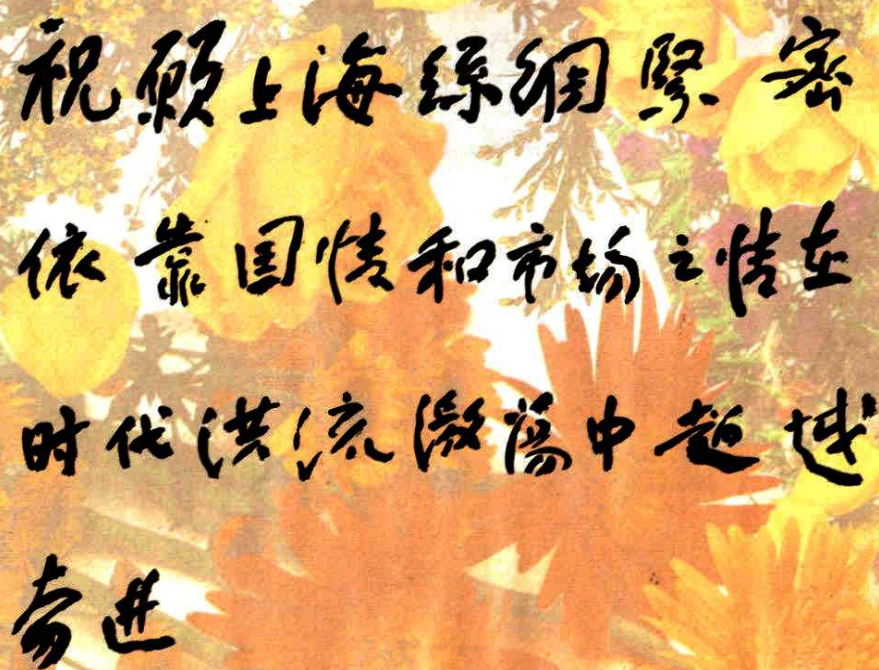 祝願上海絲綢緊密
依靠国情和市场之情在
时代洪流激荡中超越
奋进